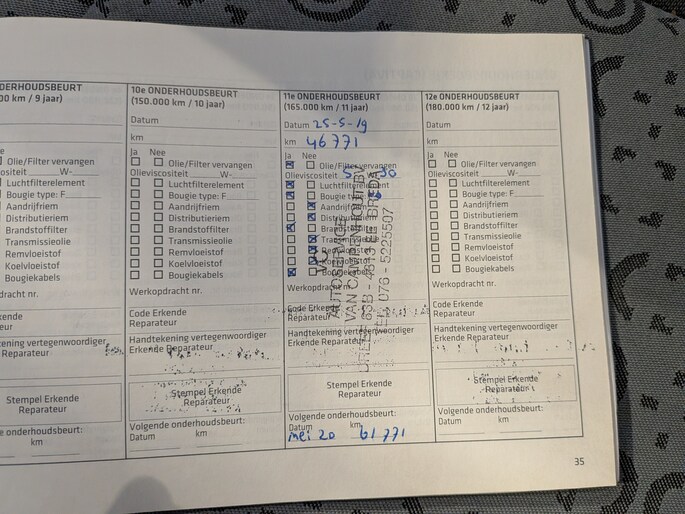 DERHOUDSBEURT
00 km / 9 jaar)
e
Olie/Filter vervangen
ositeit W-
Luchtfilterelement
Bougie type: F
Aandrijfriem
Distributieriem
Brandstoffilter
Transmissieolie
Remvloeistof
Koelvloeistof
Bougiekabels
dracht nr.
kende
eur
ening vertegenwoordiger
Reparateur
Stempel Erkende
Reparateur
e onderhoudsbeurt:
km
10e ONDERHOUDSBEURT
(150.000 km / 10 jaar)
Datum
km
Ja Nee
Olie/Filter vervangen
Olieviscositeit W-
Luchtfilterelement
Bougie type: F
Aandrijfriem
Distributieriem
Brandstoffilter
Transmissieolie
Remvloeistof
Koelvloeistof
Bougiekabels
Werkopdracht nr.
Code Erkende
Reparateur
Handtekening vertegenwoordiger
Erkende Reparateur
Stempel Erkende
Reparateur
Volgende onderhoudsbeurt:
Datum km
11e ONDERHOUDSBEURT
(165.000 km / 11 jaar)
Datum 25-5-19
km 46771
Ja Nee
Olie/Filter vervangen
Olieviscositeit 5 30
Luchtfilterelement
Bougie type: F
Aandrijfriem
Distributieriem
Brandstoffilter
Transmissieolie
Remvloeistof
Koelvloeistof
Bougiekabels
Werkopdracht nr.
Code Erkende
Reparateur
Handtekening vertegenwoordiger
Erkende Reparateur
AUTOSERVICE
VAN CAMPENHOUT BV
BREDA
076 - 5225507
Stempel Erkende
Reparateur
Volgende onderhoudsbeurt:
Datum km
mei 20 61771
12e ONDERHOUDSBEURT
(180.000 km / 12 jaar)
Datum
km
Ja Nee
Olie/Filter vervangen
Olieviscositeit W-
Luchtfilterelement
Bougie type: F
Aandrijfriem
Distributieriem
Brandstoffilter
Transmissieolie
Remvloeistof
Koelvloeistof
Bougiekabels
Werkopdracht nr.
Code Erkende
Reparateur
Handtekening vertegenwoordiger
Erkende Reparateur
Stempel Erkende
Reparateur
Volgende onderhoudsbeurt:
Datum km
35